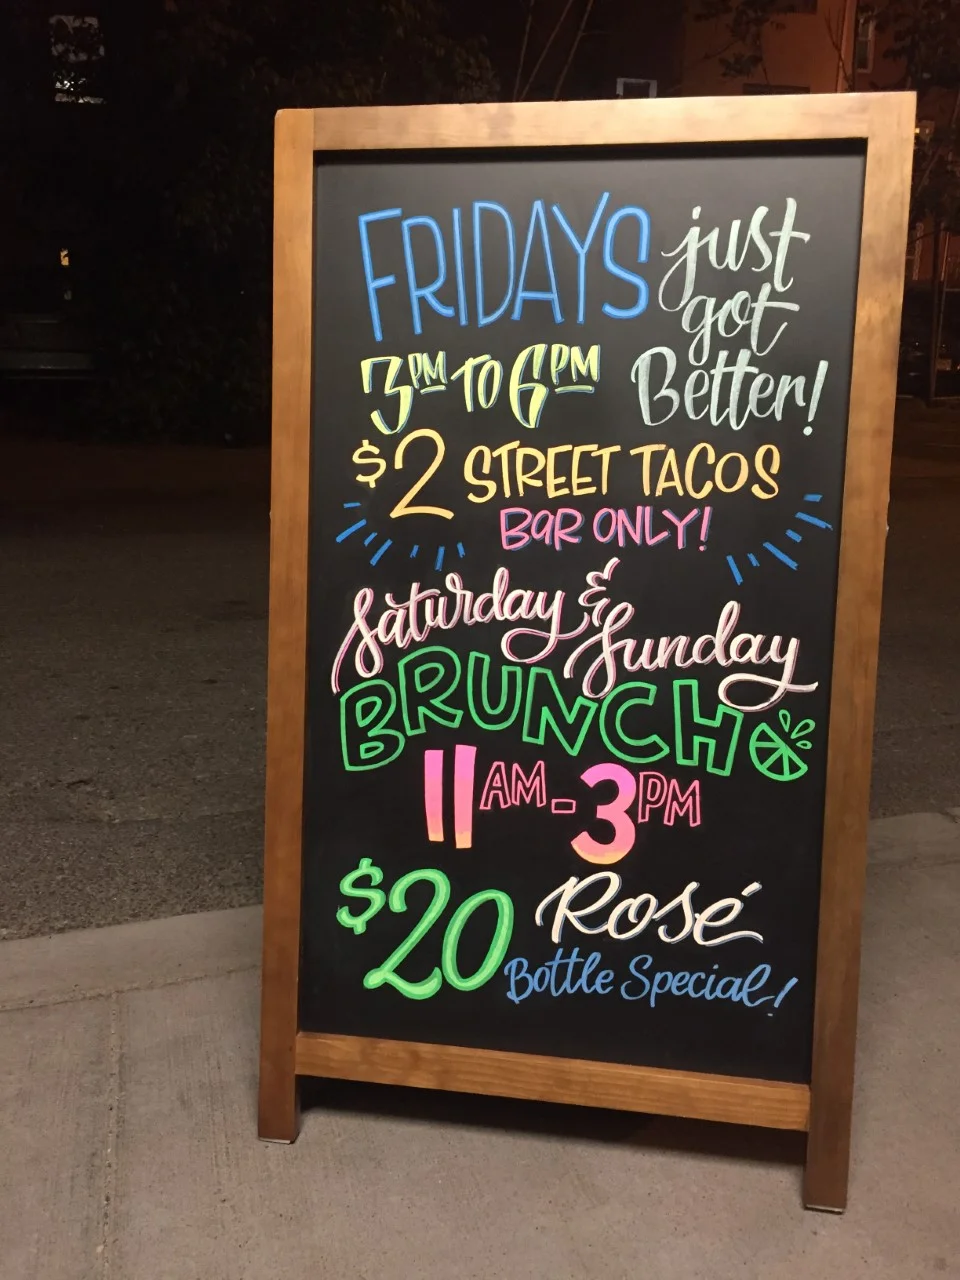 FRIDAYS just got Better!
3PM TO 6PM
$2 STREET TACOS
BAR ONLY!
Saturday & Sunday
BRUNCH
11AM - 3PM
$20 Rosé
Bottle Special!